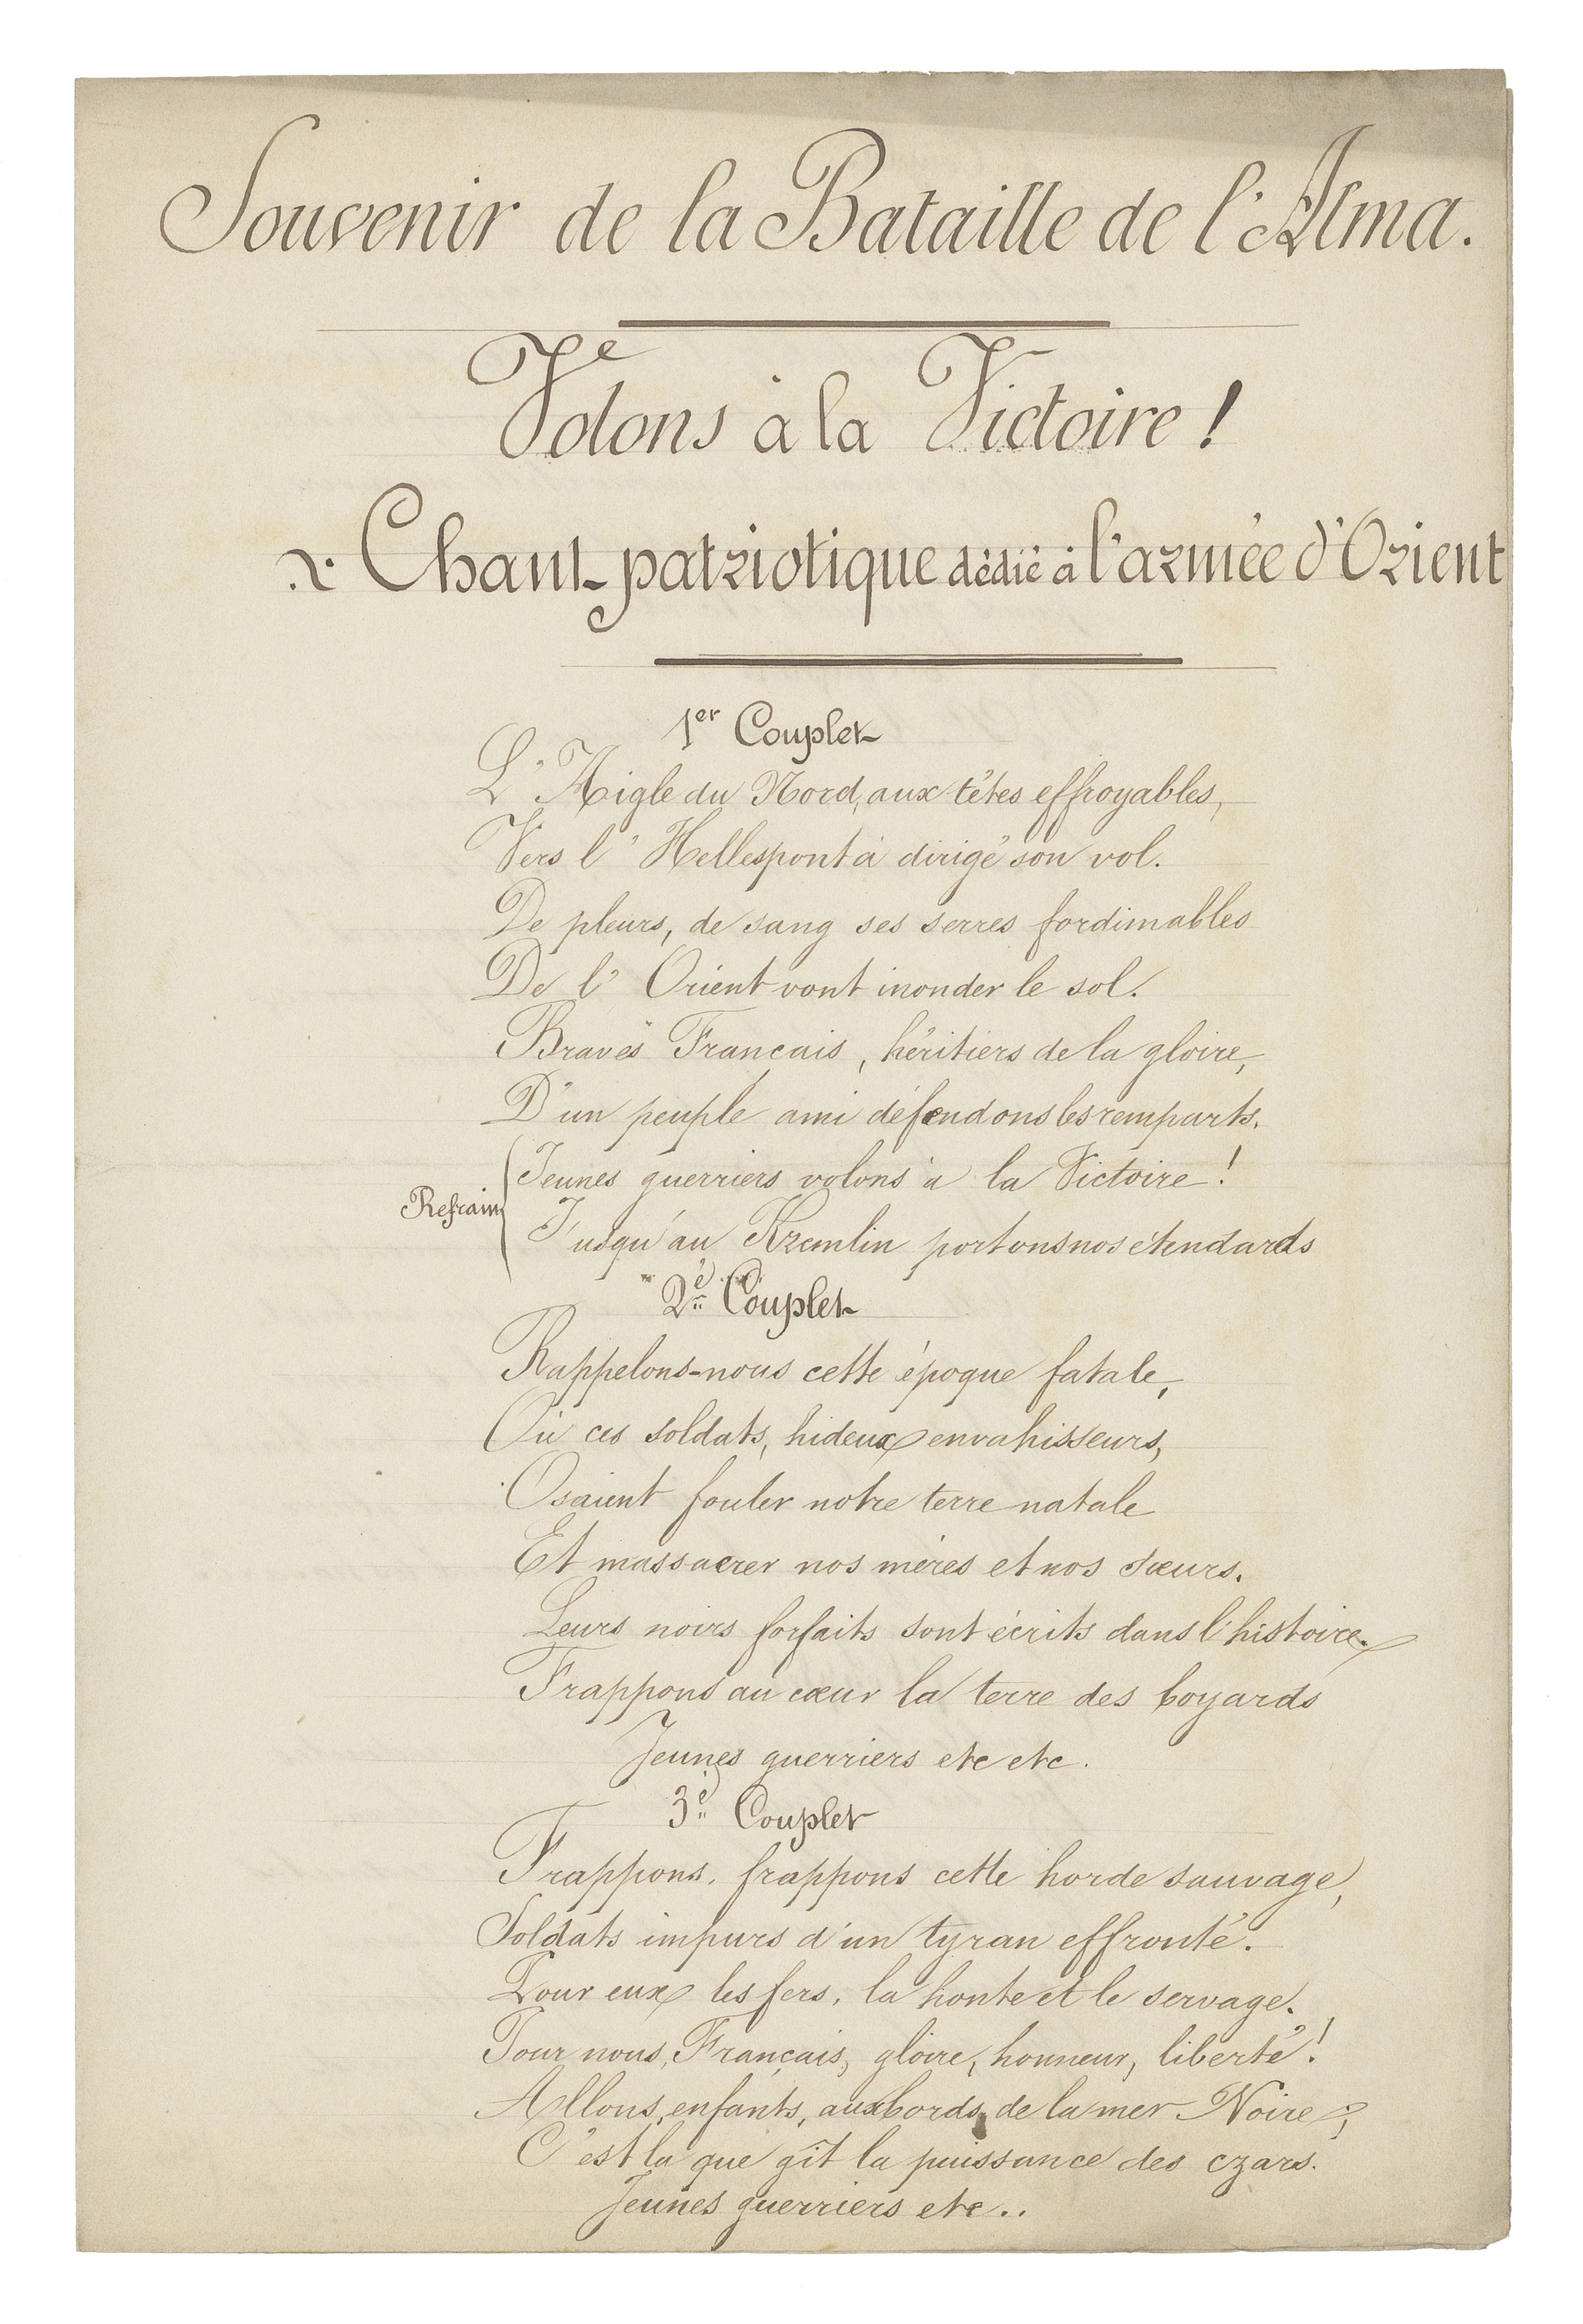 Souvenir de la Bataille de l'Alma.
Volons à la Victoire !
Chant patriotique dédié à l'armée d'Orient
1er Couplet
L'Aigle du Nord, aux têtes effroyables,
Vers l'Hellespont a dirigé son vol.
De pleurs, de sang ses serres fordimables
De l'Orient vont inonder le sol.
Braves Français, héritiers de la gloire,
D'un peuple ami défendons les remparts.
Jeunes guerriers volons à la Victoire !
Refrain
Jusqu'au Kremlin portons nos étendards
2e Couplet
Rappelons-nous cette époque fatale,
Où ces soldats, hideux envahisseurs,
Osaient fouler notre terre natale
Et massacrer nos mères et nos sœurs.
Leurs noirs forfaits sont écrits dans l'histoire.
Frappons au cœur la terre des boyards
Jeunes guerriers etc etc.
3e Couplet
Frappons, frappons cette horde sauvage,
Soldats impurs d'un tyran effronté.
Pour eux les fers, la honte et le servage.
Pour nous, Français, gloire, honneur, liberté !
Allons, enfants, aux bords de la mer Noire,
C'est là que gît la puissance des czars.
Jeunes guerriers etc..